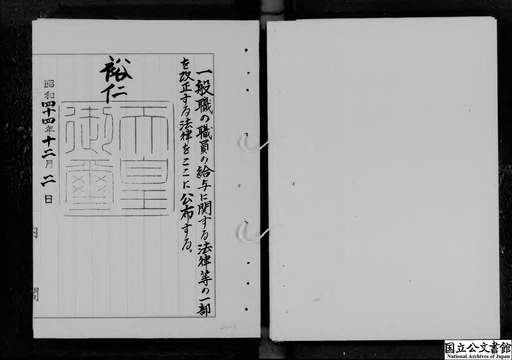 一般職の職員の給与に関する法律等の一部
を改正する法律をここに公布する。
裕仁
天皇
御璽
昭和四十四年十二月二日
内閣
国立公文書館
National Archives of Japan